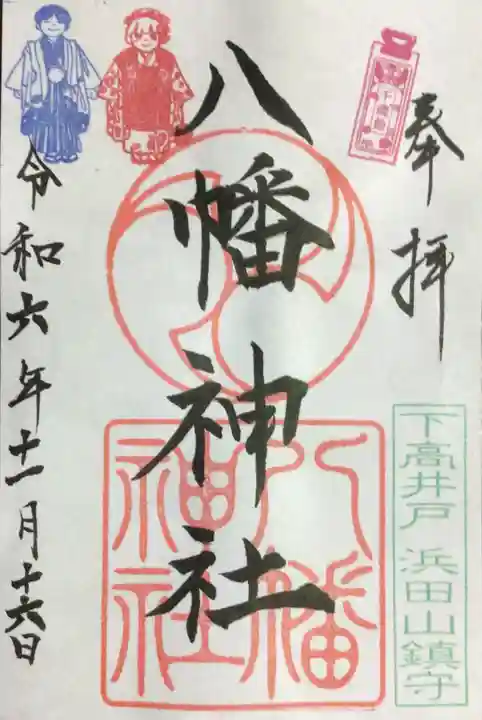 奉拝
下高井戸 浜田山鎮守
八幡神社
八幡神社
令和六年十一月十六日